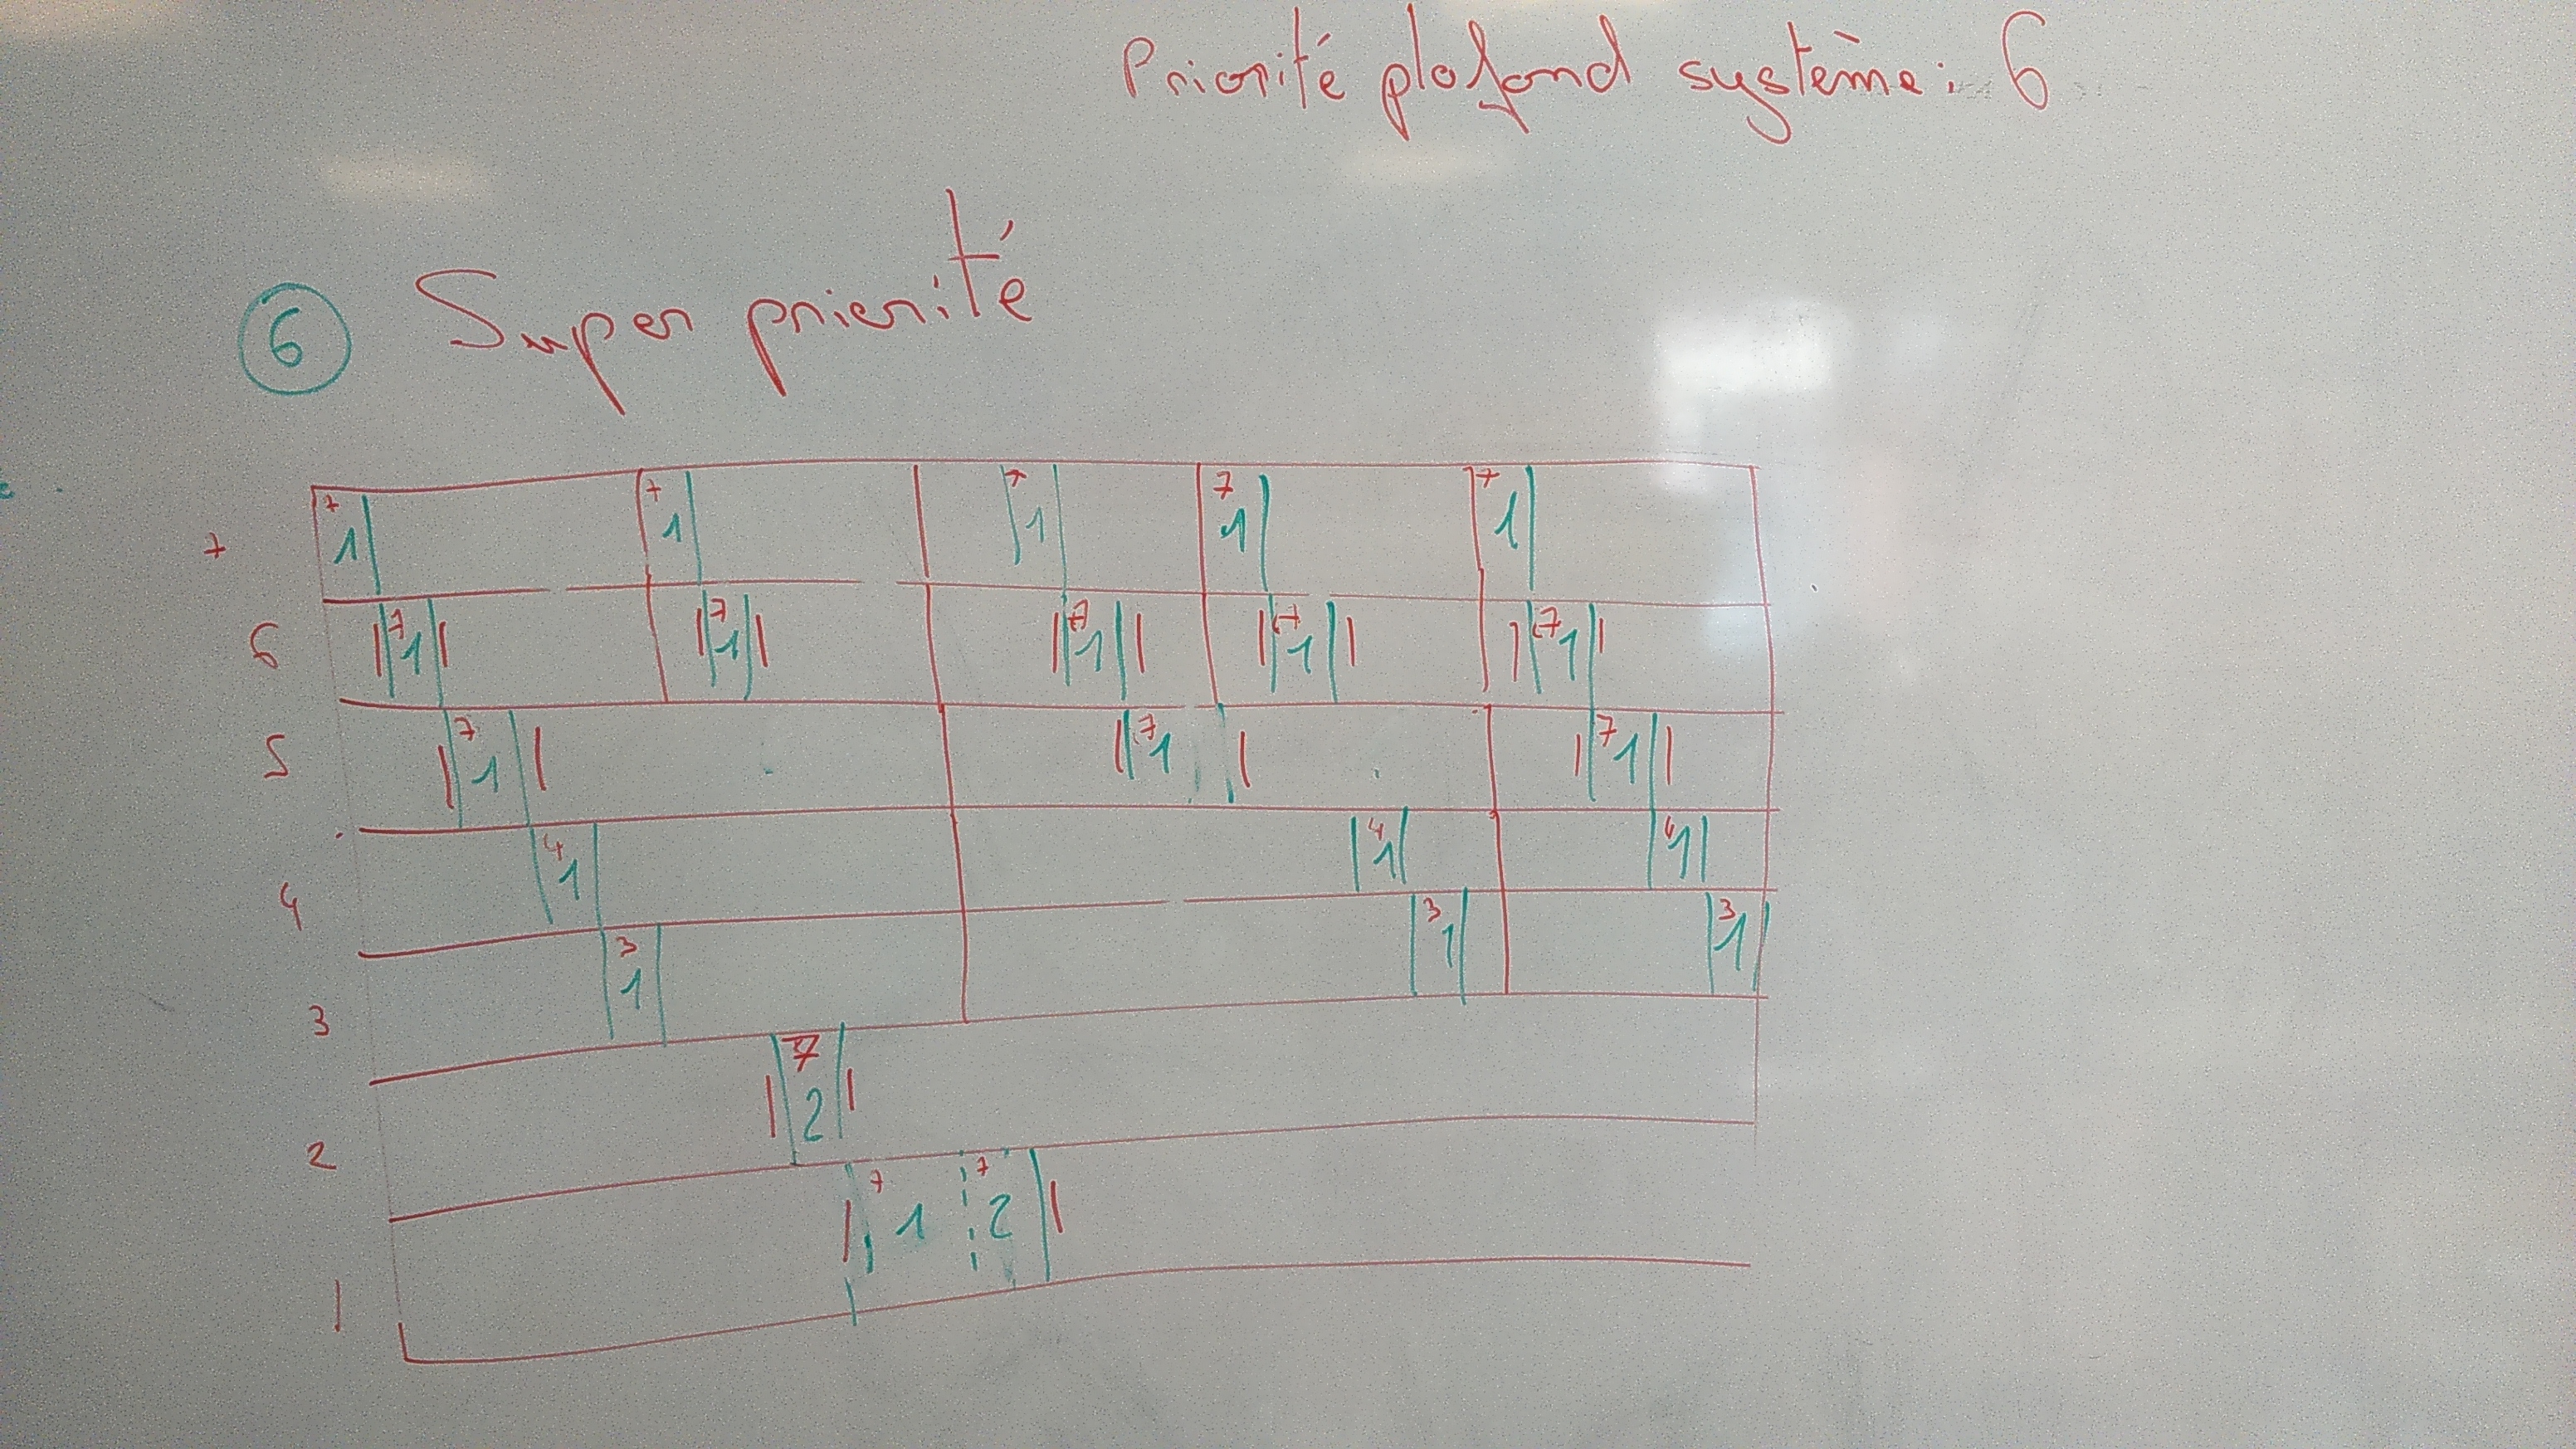 Priorité plafond système: 6
6 Super priorité
7 7 7 7 7
7 1 1 1 1 1
7 7 7 7 7
6 1 1 1 1 1
7 7 7
5 1 1 1
4 4 4
4 1 1 1
3 3 3
3 1 1 1
7
2 2
7 7
1 1 2